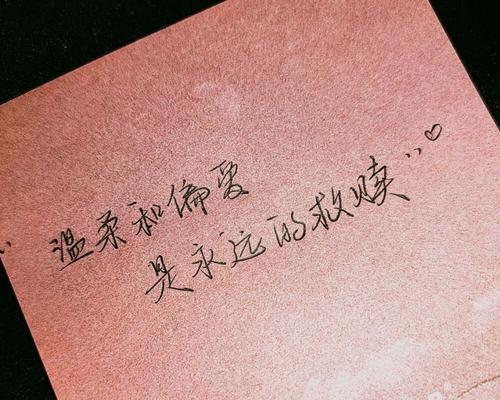 温柔和偏爱
是永远的救赎